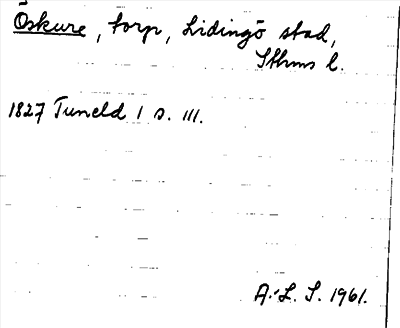 Öskure, torp, Lidingö stad,
Sthms l.
1827 Tuneld I s. 111.
A.-L. S. 1961.